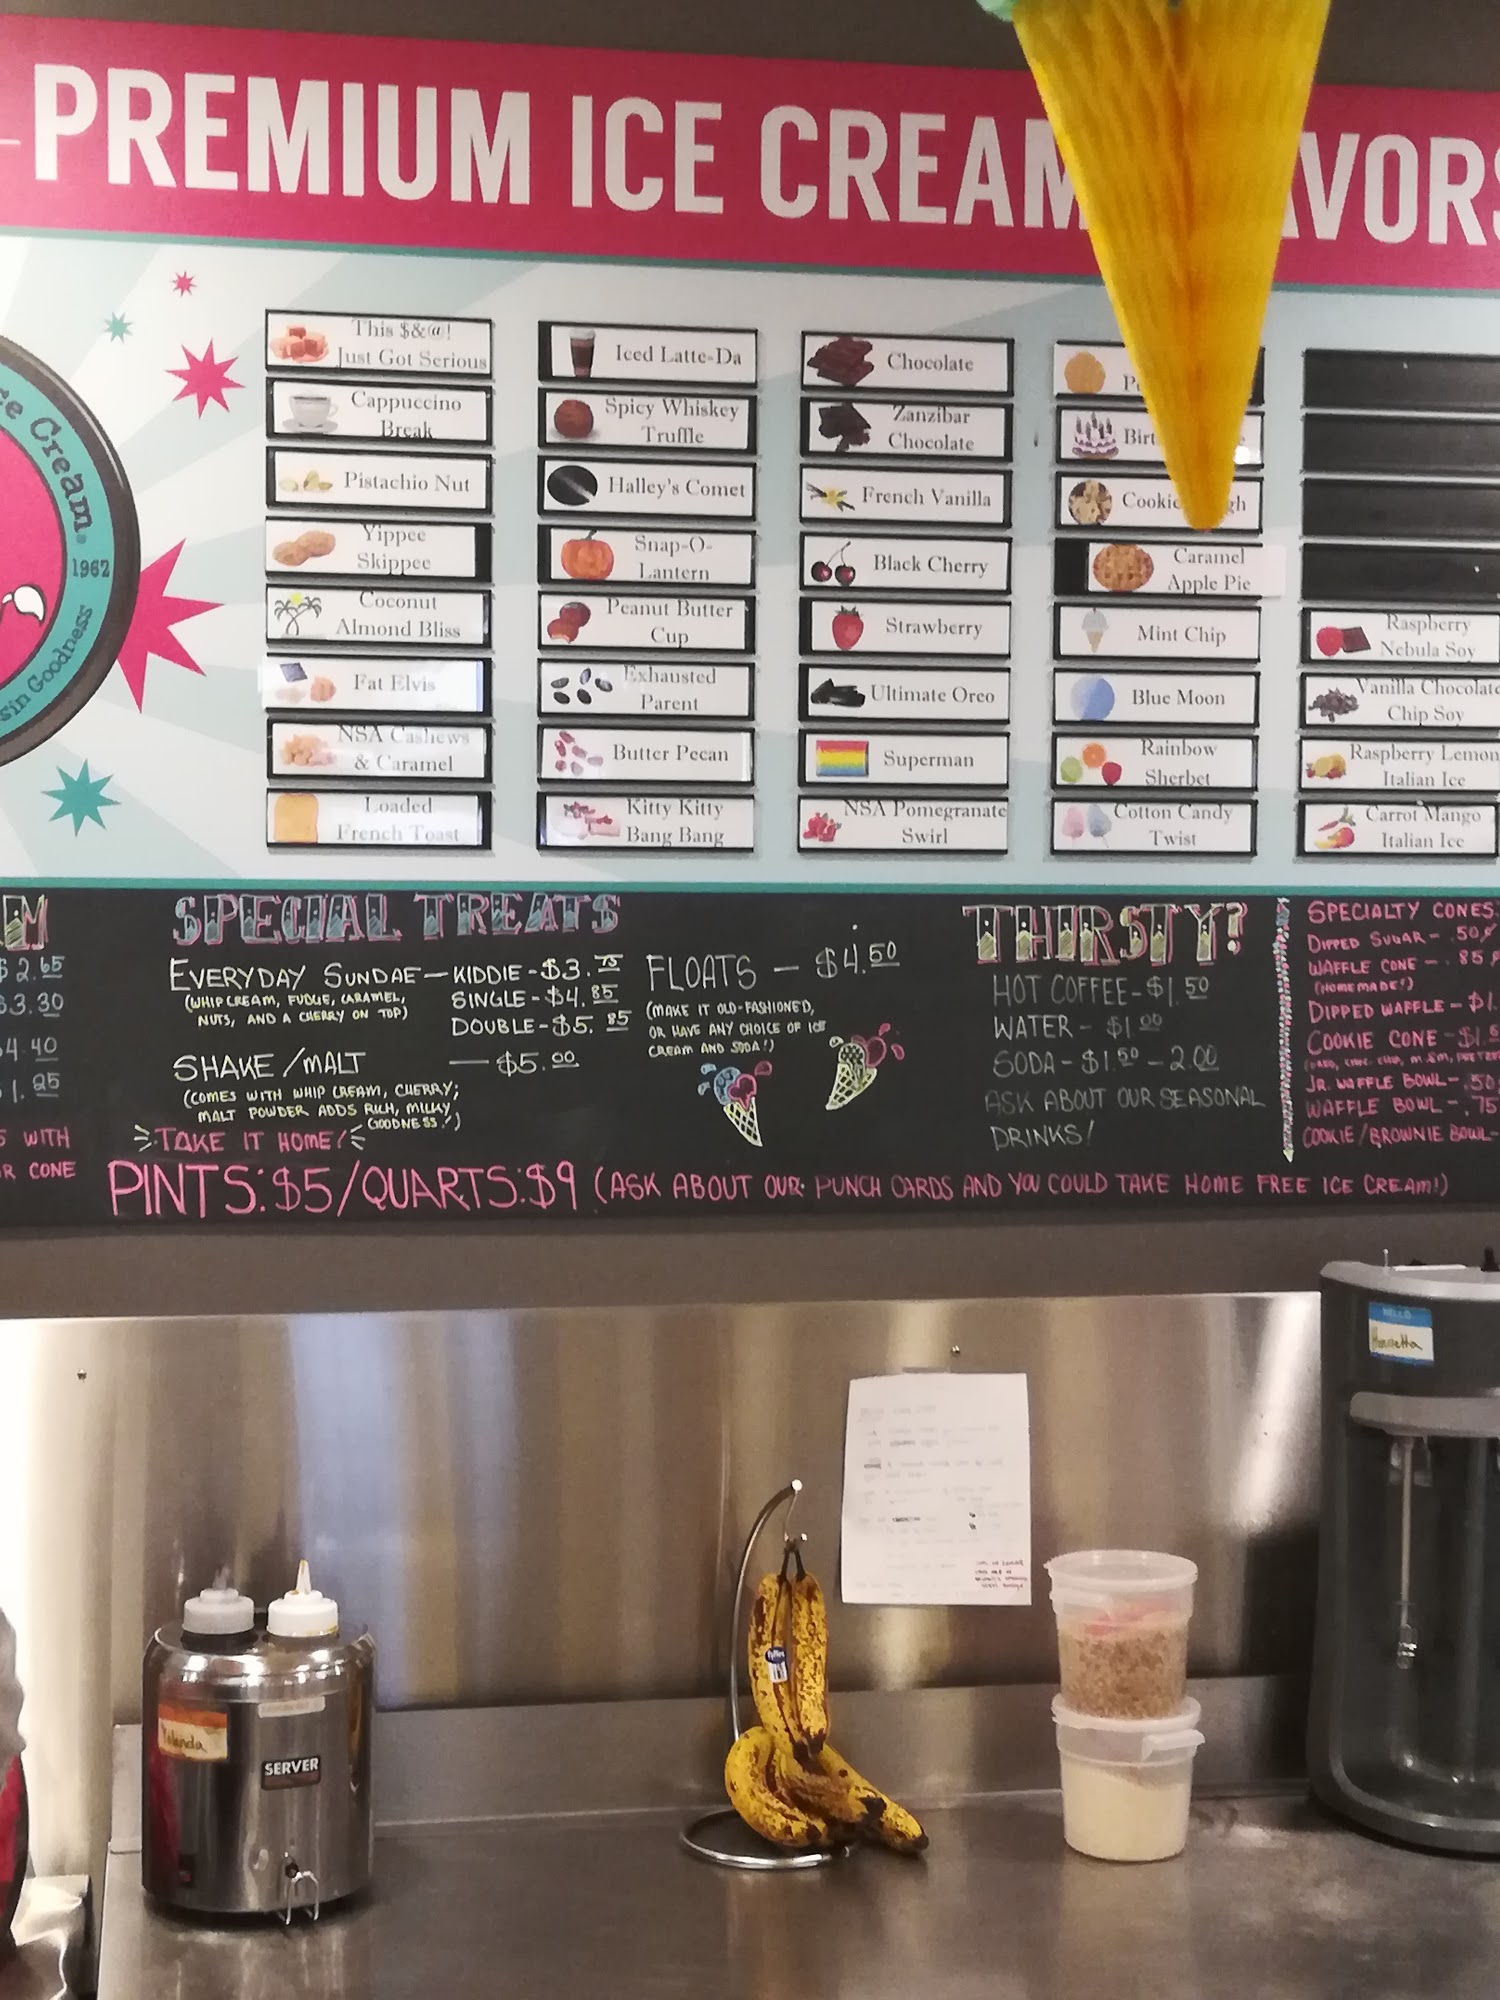 PREMIUM ICE CREAM
ce Cream
1962
sin Goodness
This $&@!
Just Got Serious
Cappuccino
Break
Pistachio Nut
Yippee
Skippee
Coconut
Almond Bliss
Fat Elvis
NSA Cashews
& Caramel
Loaded
French Toast
Iced Latte-Da
Spicy Whiskey
Truffle
Halley's Comet
Snap-O-
Lantern
Peanut Butter
Cup
Exhausted
Parent
Butter Pecan
Kitty Kitty
Bang Bang
Chocolate
Zanzibar
Chocolate
French Vanilla
Black Cherry
Strawberry
Ultimate Oreo
Superman
NSA Pomegranate
Swirl
Caramel
Apple Pie
Mint Chip
Blue Moon
Rainbow
Sherbet
Cotton Candy
Twist
Raspberry
Nebula Soy
Vanilla Chocolate
Chip Soy
Raspberry Lemon
Italian Ice
Carrot Mango
Italian Ice
$2.65
$3.30
4.40
1.25
S WITH
R CONE
SPECIAL TREATS
EVERYDAY SUNDAE — KIDDIE - $3.75
(WHIP CREAM, FUDGE, CARAMEL, SINGLE - $4.85
NUTS, AND A CHERRY ON TOP) DOUBLE - $5.85
SHAKE/MALT — $5.00
(COMES WITH WHIP CREAM, CHERRY;
MALT POWDER ADDS RICH, MILKY
GOODNESS!)
FLOATS — $4.50
(MAKE IT OLD-FASHIONED,
OR HAVE ANY CHOICE OF ICE
CREAM AND SODA!)
TAKE IT HOME!
PINTS: $5/QUARTS: $9 (ASK ABOUT OUR PUNCH CARDS AND YOU COULD TAKE HOME FREE ICE CREAM!)
THIRSTY?
HOT COFFEE - $1.50
WATER - $1.00
SODA - $1.50 - 2.00
ASK ABOUT OUR SEASONAL
DRINKS!
SPECIALTY CONES
DIPPED SUGAR - .50¢
WAFFLE CONE - .85¢
(HOMEMADE!)
DIPPED WAFFLE - $1.
COOKIE CONE - $1.
JR. WAFFLE BOWL - .50
WAFFLE BOWL - .75
COOKIE/BROWNIE BOWL -
HELLO
Henrietta
Yolanda
SERVER